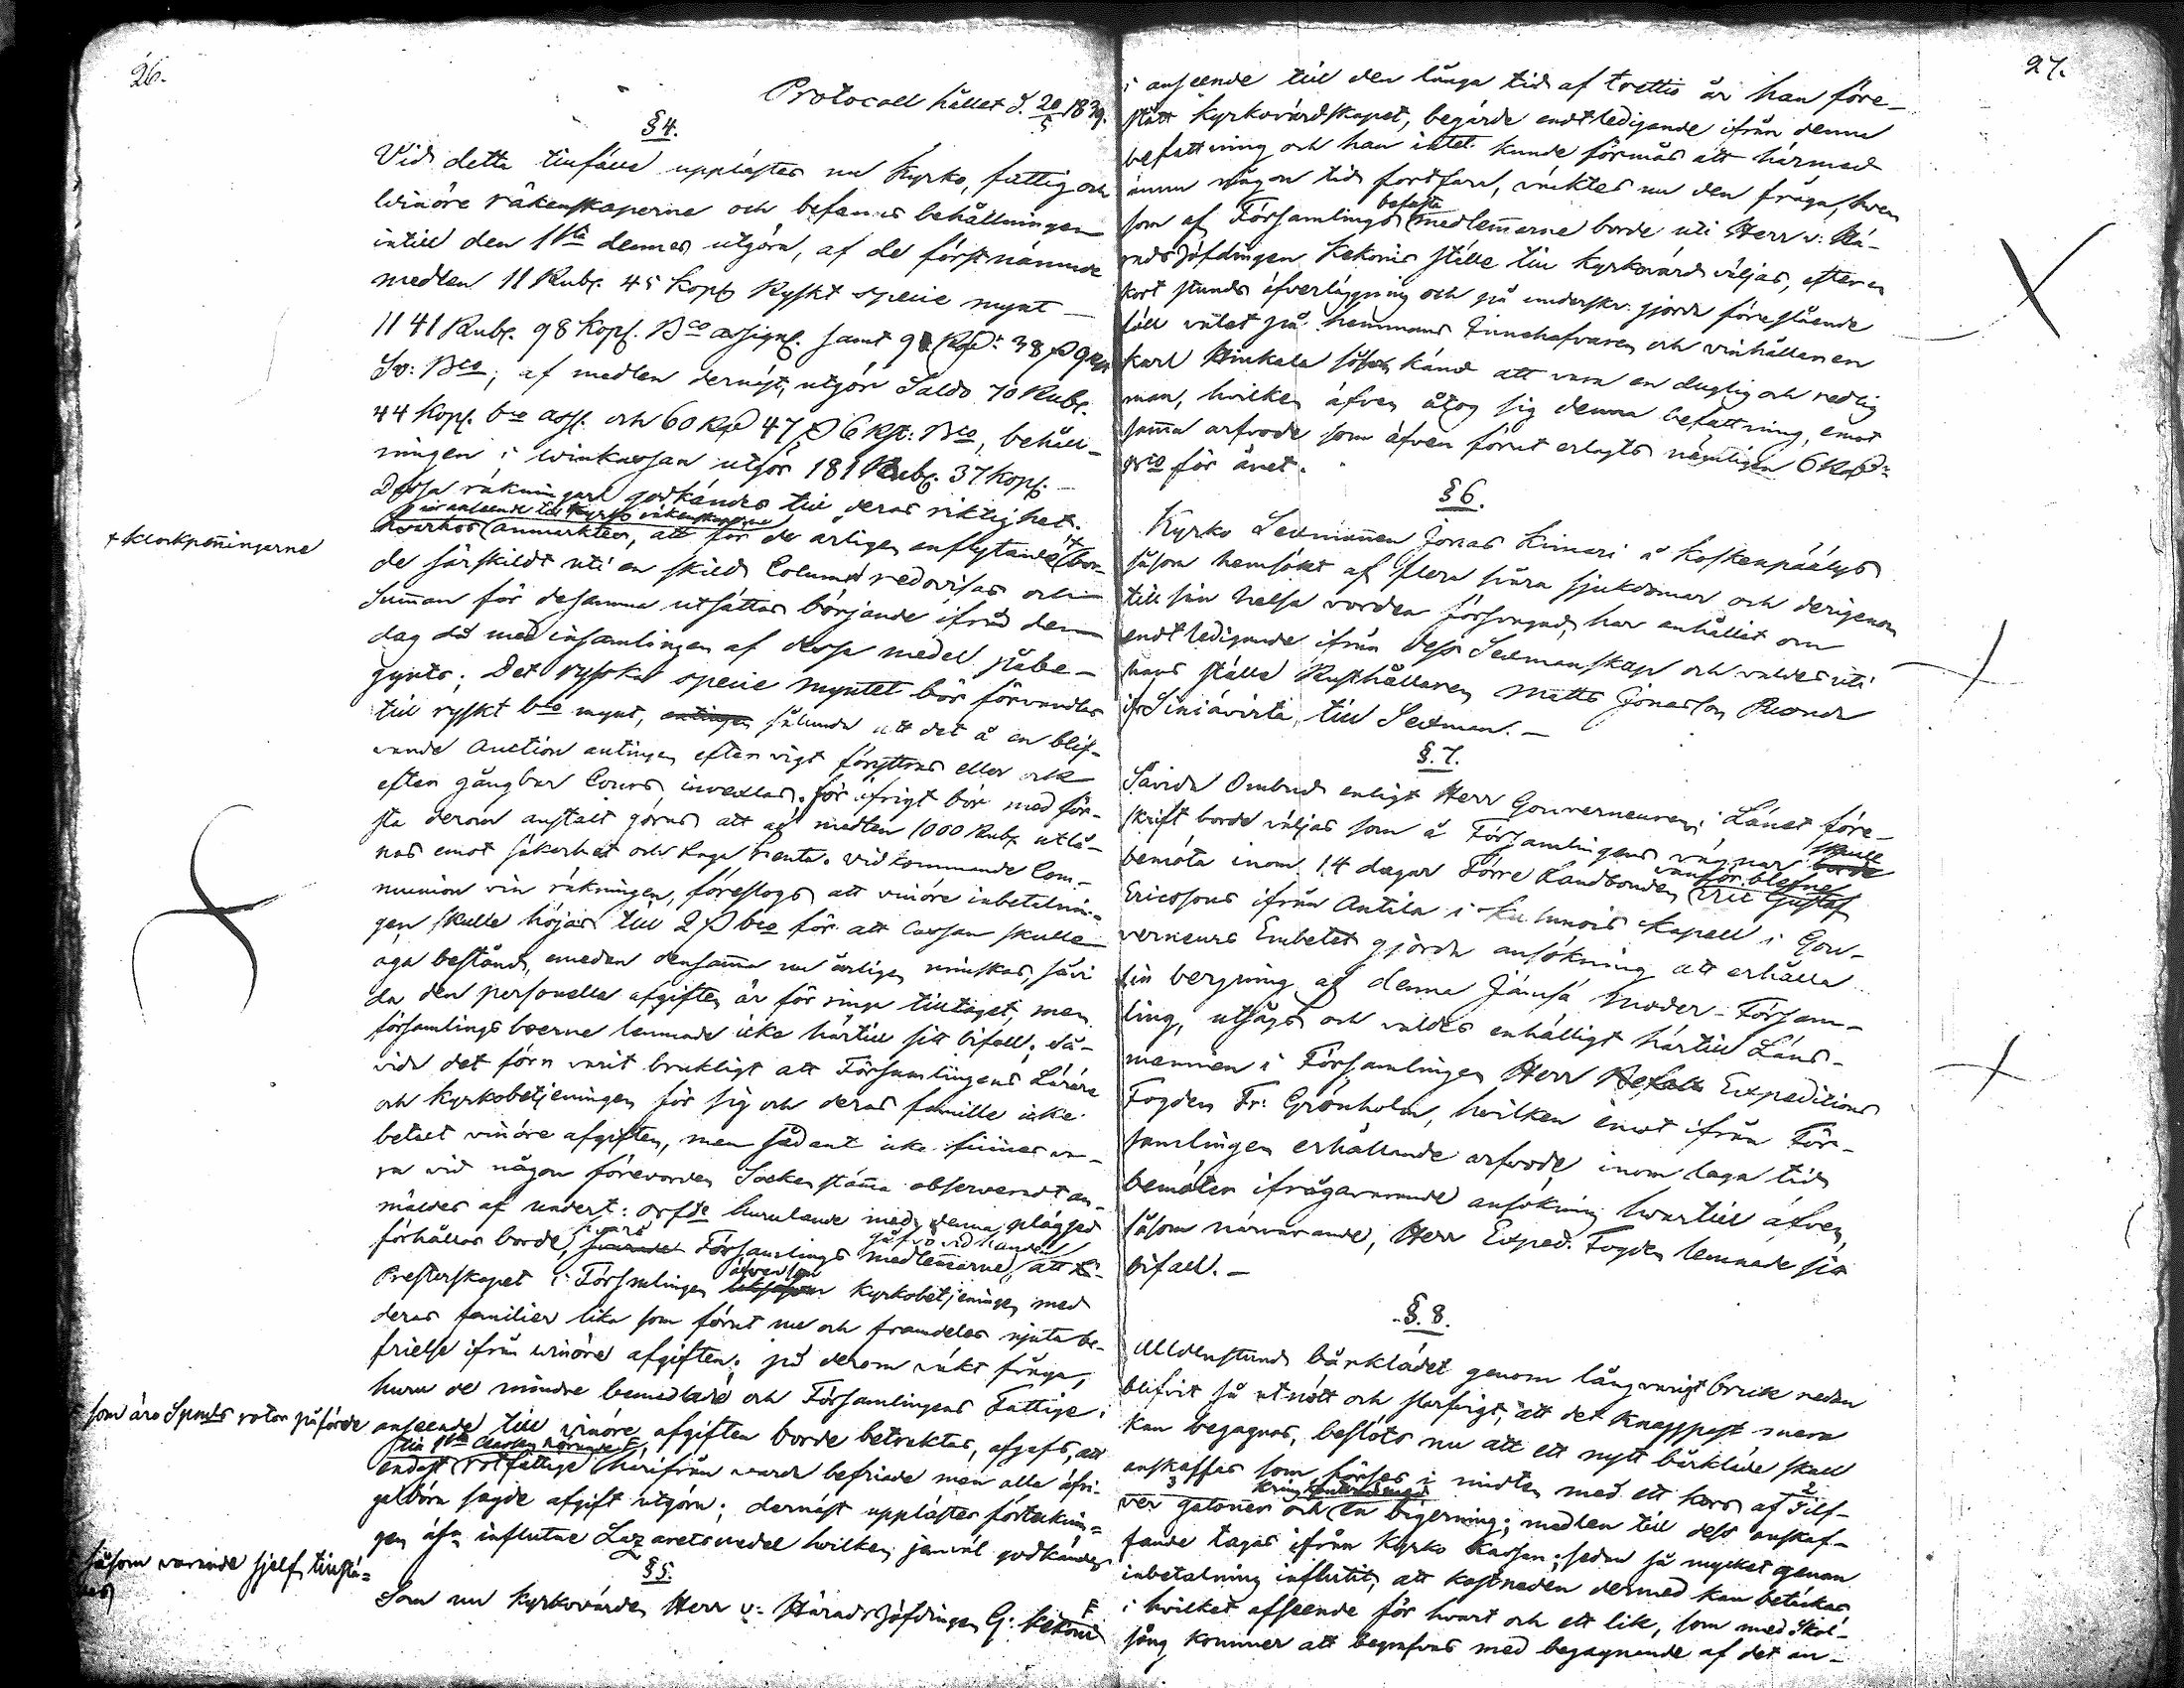 26.
Protocoll hållet d. 20/5 1839.
§ 4.
Vid detta tillfälle upplästes nu Kyrko, fattig och
winöre räkenskaperne och befanns behållningen
intill den 1sta dennes utgöra, af de förstnämnde
medlen 11 Rub. 45 Kop. Ryskt specie mynt –
1141 Rub. 98 Kop. Bco assign. samt 9 Rd: 38 s 9 rst
Sv: Bco; af medlen dernäst, utgör Saldo 70 Rub.
44 Kop. bco ass. och 60 Rd 47 s 6 rst: Bco, behåll-
ningen i winkassan utgör 181 Rub. 37 Kop. –
Dessa räkningar godkändes till deras riktighet.
i anseende till Kyrko räkenskaperne
hvarhos anmärktes, att för de årligen inflytande + bor-
+ klockpenningarne
de särskildt uti en skild Column redovisas och
Summan för desamma utsättas börjande ifrån den
dag då med insamlingen af dessa medel påbe-
gynts; Det ryska specie myntet bör förvandlas
till ryskt bco mynt, antingen sålunda att det å en blif-
vande Auction antingen efter vigt förytras eller ock
efter gångbar Cours, invexlas; för öfrigt bör med för-
sta derom anstalt göras att af medlen 1000 Rub. utlå-
nas emot säkerhet och laga renta. Vidkommande Com-
munion vin räkningen, föreslogs att vinöre inbetalnin-
gen skulle höjas till 2 s bco för att Cassan skulle
äga bestånd, emedan densamma nu årligen minskas, såvi
da den personella afgiften är för ringa tilltaget, men
församlingsboerne lemnade icke härtill sitt bifall; Så-
vida det förr varit brukligt att Församlingens Lärare
och Kyrkobetjeningen för sig och deras famille icke
betalt vinöre afgiften, men sådant icke finnes va-
ra vid någon förevarande Sockenstämma observeradt an-
mäldes af undert: orfde hurulunda med denna plägsed
förhållas borde, hvarå Församlings medlemmarne gåfvo vid handen, att
Presterskapet i Församlingen äfvensom Kyrkobetjeningen med
deras familier lika som förut nu och framdeles njuta be-
frielse ifrån winöre afgiften; på derom väkt fråga,
huru de mindre bemedlade och Församlingens Fattige i
som äro Spmåls rotar påförde
anseende till winöre afgiften borde betraktas, afgafs, att
till 1sta Classen hörande
endast rotfattige härifrån vara befriade men alla öfri-
ga böra sagde afgift utgöra; dernäst upplästes förteknin-
gen öfver influtne Lazaretsmedel hvilken jemväl godkändes
såsom varande sjelf tillstä-
des
§ 5.
Som nu Kyrkovärden Herr v: Häradshöfdingen G: F Kekoni

27.
i anseende till den långa tid af trettio år han före-
stått Kyrkovärdskapet, begärde endtledigande ifrån denna
befattning och han intet kunde förmås att härmed
ännu någon tid fortfara, väktes nu den fråga, hvem
som af Församlings besuttne medlemmarne borde uti Herr v: Hä-
radshöfdingen Kekonis ställe till Kyrkovärd väljas, efter en
kort stunds öfverläggning och på underskr. gjorde föreslående
föll valet på hemmans Innehafvaren och vinhållaren
Karl Hinkala såsom känd att vara en duglig och redlig
man, hvilken äfven åtog sig denna befattning, emot
samma arfvode som äfven förut erlagts nämligen 6 Rd:
Bco för året.
§ 6.
Kyrko Sexmannen Jonas Kimari å Koskenpää by
såsom hemsökt af flera svåra sjukdomar och derigenom
till sin helsa vorden försvagad, har anhållit om
endtledigande ifrån dess Sexmanskap och valdes uti
hans ställe Rusthållaren Matts Jonasson Ruona
ifr. Siniävirta, till Sexman. –
§. 7.
Såvida Ombud enligt Herr Gouverneuren i Länet före-
skrift borde väljas som å Församlingens vägnar skulle
bemöta inom 14 dagar Förre Landbonden vanför blefne Eric Gustaf
Ericssons ifrån Antila i Kuhmois Kapell i Gou-
verneurs Embetet gjorda ansökning att erhålla
sin bergning af denna Jämsä Moder-Försam-
ling, utsågs och valdes enhälligt härtill Läns-
mannen i Församlingen Herr Expeditions
Fogden Fr: Grönholm, hvilken emot ifrån För-
samlingen erhållande arfvode, inom laga tid
bemöter ifrågavarande ansökning hvartill äfven,
såsom närvarande, Herr Exped. Fogden lemnade sitt
bifall. –
§. 8.
Alldenstund bårklädet genom långvarigt bruk redan
blifvit så utnött och slarfvigt, att det knappast mera
kan begagnas, beslöts nu att ett nytt bårkläde skall
anskaffas som förses i midten med ett kors af 2 Silf-
ver galoner och 3 en bigerning; medlen till dess anskaf-
fande tagas ifrån Kyrko Kassan, sedan så mycket genom
inbetalning influtit, att kostnaden dermed kan betäckas
i hvilket afseende för hvart och ett lik, som med Skol-
sång kommer att begrafvas med begagnande af det an-